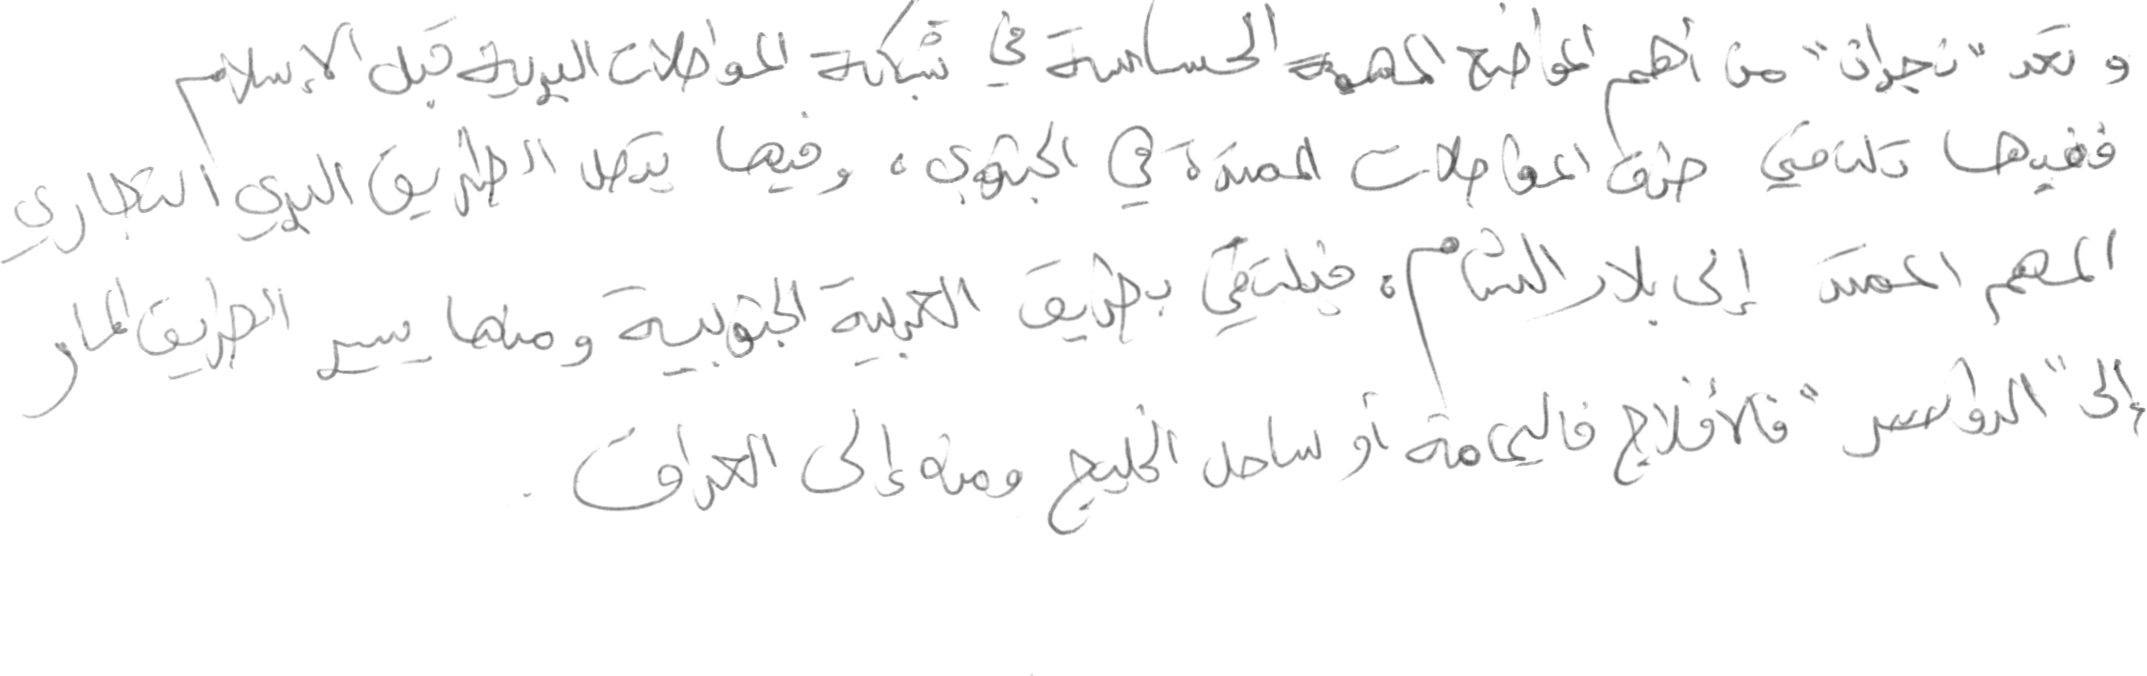 و تعد "نجران" من أهم المواضع المهمة الحساسة في شبكة المواصلات البرية قبل الإسلام
ففيها تلتقي طرق المواصلات الممتدة في الجنوب، وفيها يتصل الطريق البري التجاري
المهم الممتد إلى بلاد الشام، فيلتقي بطريق العربية الجنوبية ومنها يسير الطريق المار
إلى "الدواسر" فالأفلاج فاليمامة أو ساحل الخليج ومنه إلى العراق.